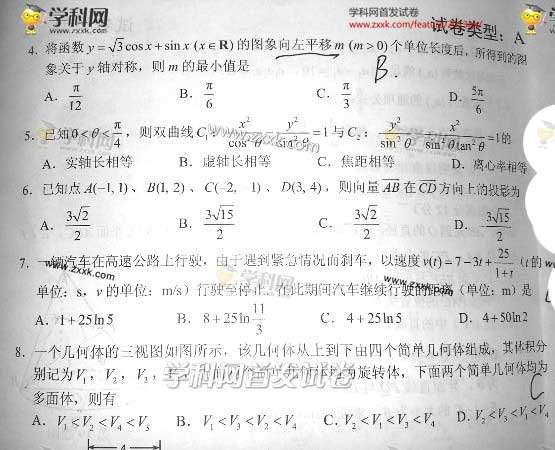 学科网
www.zxxk.com
学科网首发试卷
www.zxxk.com/feature
试卷类型：A
4. 将函数 y = √3 cos x + sin x (x ∈ R) 的图象向左平移 m (m > 0) 个单位长度后，所得到的图
象关于 y 轴对称，则 m 的最小值是
B.
A. π/12 B. π/6 C. π/3 D. 5π/6
5. 已知 0 < θ < π/4，则双曲线 C₁：x²/cos²θ − y²/sin²θ = 1 与 C₂：y²/sin²θ − x²/sin²θ tan²θ = 1 的
A. 实轴长相等 B. 虚轴长相等 C. 焦距相等 D. 离心率相等
6. 已知点 A(−1, 1)、B(1, 2)、C(−2, 1)、D(3, 4)，则向量 AB 在 CD 方向上的投影为
A. 3√2/2 B. 3√15/2 C. −3√2/2 D. 3√15/2
7. 一辆汽车在高速公路上行驶，由于遇到紧急情况而刹车，以速度 v(t) = 7 − 3t + 25/1+t (t 的
单位：s，v 的单位：m/s) 行驶至停止. 在此期间汽车继续行驶的距离（单位：m）是
A. 1 + 25 ln 5 B. 8 + 25 ln 11/3 C. 4 + 25 ln 5 D. 4 + 50 ln 2
8. 一个几何体的三视图如图所示，该几何体从上到下由四个简单几何体组成，其体积分
别记为 V₁，V₂，V₃，
学科网首发试卷
旋转体，下面两个简单几何体均为
多面体，则有
C
A. V₁ < V₂ < V₄ < V₃ B. V₁ < V₃ < V₂ < V₄ C. V₂ < V₁ < V₃ < V₄ D. V₂ < V₃ < V₁ < V₄
4